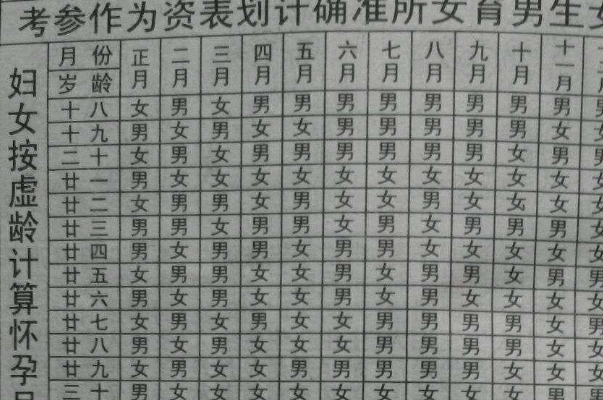 生男育女所准确计划表资为作参考
妇女按虚龄计算怀孕
月份 正月 二月 三月 四月 五月 六月 七月 八月 九月 十月 十一月
岁龄
十八 女 男 女 男 男 男 男 男 男 男 男 男
十九 男 女 男 女 女 男 男 男 男 男 女 女
二十 女 男 女 男 男 男 男 男 男 女 男 男
廿一 男 女 女 女 女 女 女 女 女 女 女 女
廿二 女 男 男 女 男 女 女 男 女 女 女 女
廿三 男 男 女 男 男 女 男 女 男 男 男 女
廿四 男 女 男 男 女 男 男 女 女 女 女 女
廿五 女 男 男 女 女 男 女 男 男 女 男 男
廿六 男 女 男 女 女 男 女 男 女 女 女 女
廿七 女 男 女 男 女 女 男 男 男 男 女 男
廿八 男 女 男 女 女 女 男 男 男 男 女 女
廿九 女 男 女 女 男 男 男 男 男 女 女 女
三十 男 女 女 女 女 女 女 女 女 女 男 男